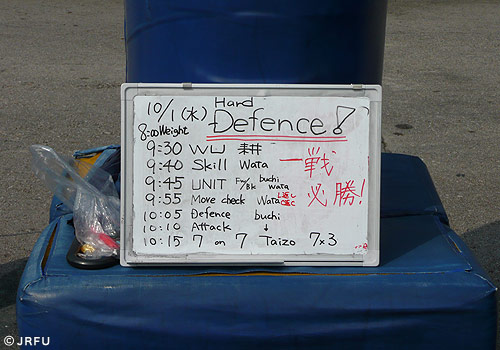 10/1(水) Hard
Defence!
8:00 Weight
9:30 WU 耕
9:40 Skill Wata
9:45 UNIT Fw/Bk buchi wata
9:55 Move check Wata
10:05 Defence buchi
10:10 Attack ↓
10:15 7 on 7 Taizo 7×3
一戦
必勝!
©JRFU